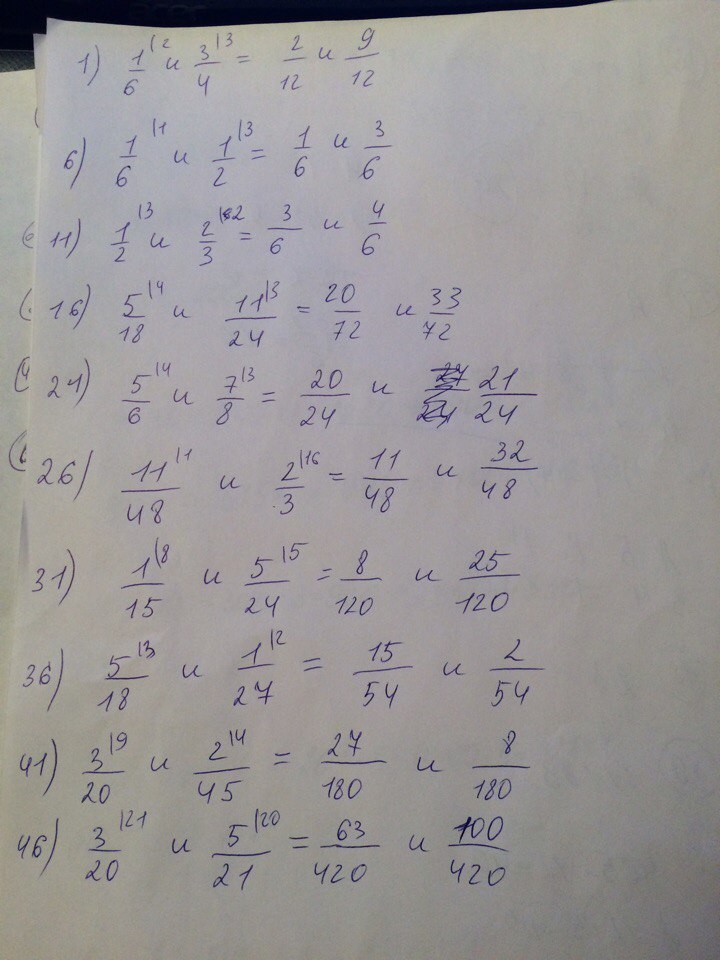 1) 1/6 |2 и 3/4 |3 = 2/12 и 9/12
6) 1/6 |1 и 1/2 |3 = 1/6 и 3/6
11) 1/2 |3 и 2/3 |2 = 3/6 и 4/6
16) 5/18 |4 и 11/24 |3 = 20/72 и 33/72
21) 5/6 |4 и 7/8 |3 = 20/24 и 21/24
26) 11/48 |1 и 2/3 |16 = 11/48 и 32/48
31) 1/15 |8 и 5/24 |5 = 8/120 и 25/120
36) 5/18 |3 и 1/27 |2 = 15/54 и 2/54
41) 3/20 |9 и 2/45 |4 = 27/180 и 8/180
46) 3/20 |21 и 5/21 |20 = 63/420 и 100/420